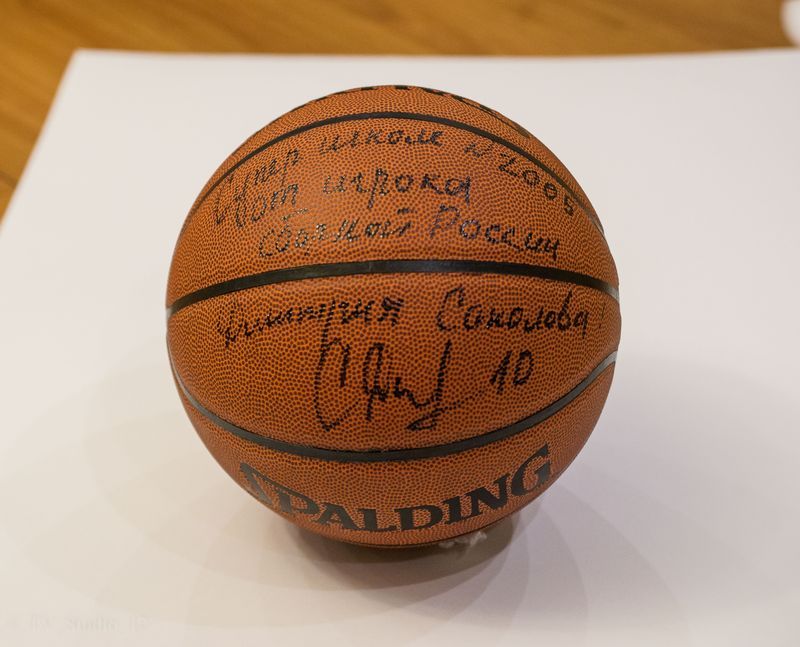 Супер школе №2005
от игрока
сборной России
Дмитрия Соколова!
10
SPALDING